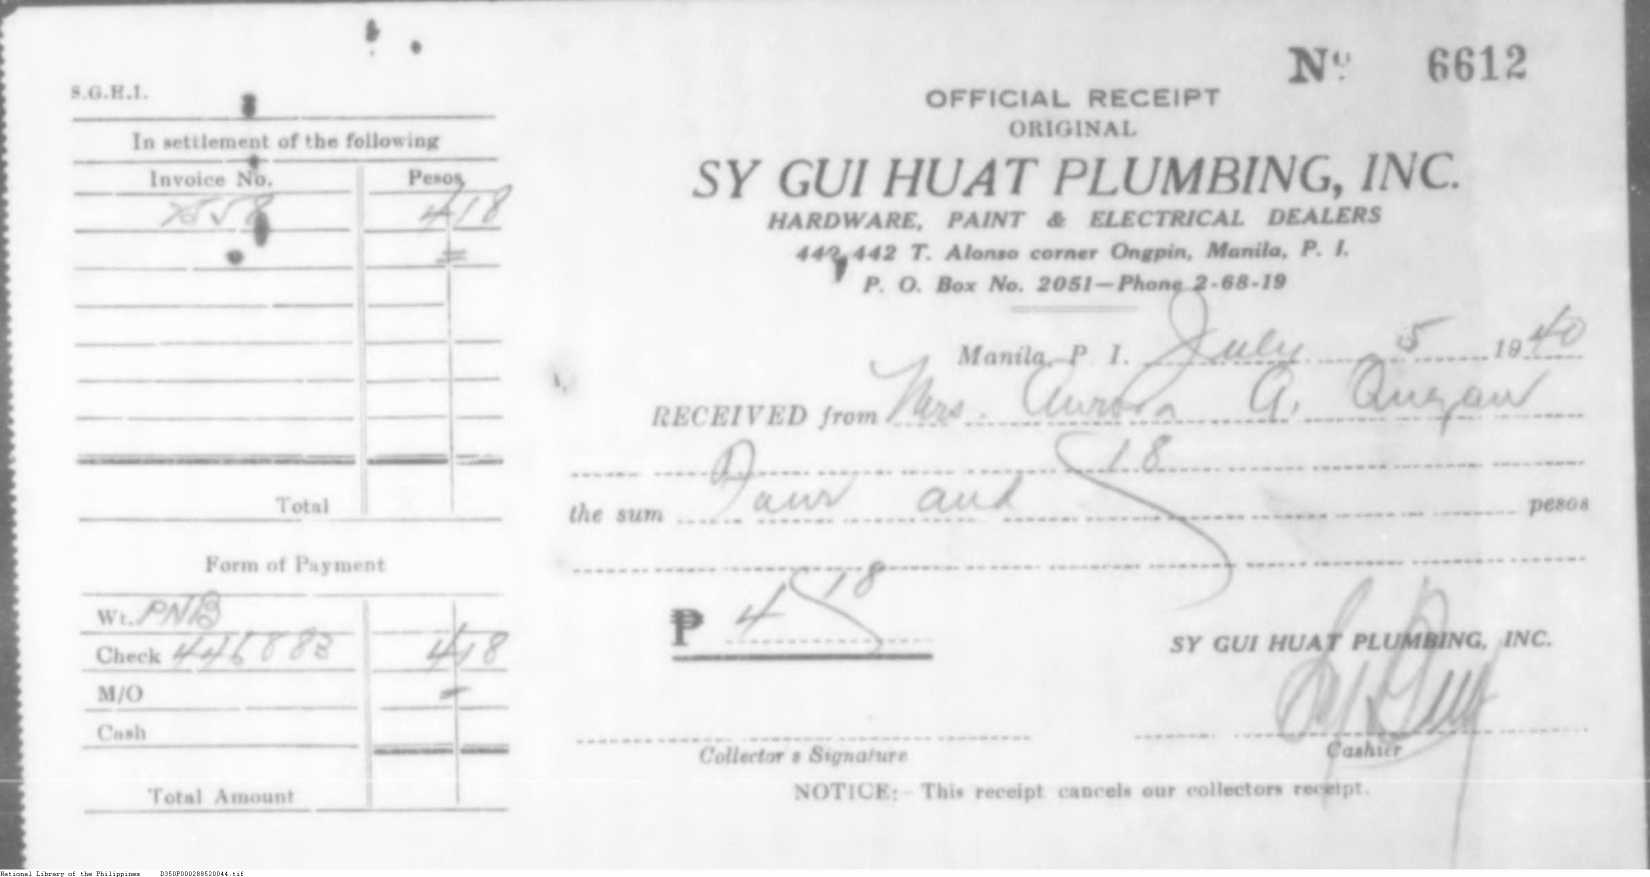 S.G.H.I.
In settlement of the following
Invoice No. Pesos
4 18
=
Total
Form of Payment
Wt. PNB
Check 446883 4 18
M/O
Cash
Total Amount
Nº 6612
OFFICIAL RECEIPT
ORIGINAL
SY GUI HUAT PLUMBING, INC.
HARDWARE, PAINT & ELECTRICAL DEALERS
442 T. Alonso corner Ongpin, Manila, P. I.
P. O. Box No. 2051—Phone 2-68-19
Manila, P. I. July 5 1940
RECEIVED from Mrs. Aurora A.
18
the sum Four and pesos
₱ 4 18
SY GUI HUAT PLUMBING, INC.
Collector s Signature
Cashier
NOTICE:- This receipt cancels our collectors receipt.
National Library of the Philippines D350P000288520044.tif